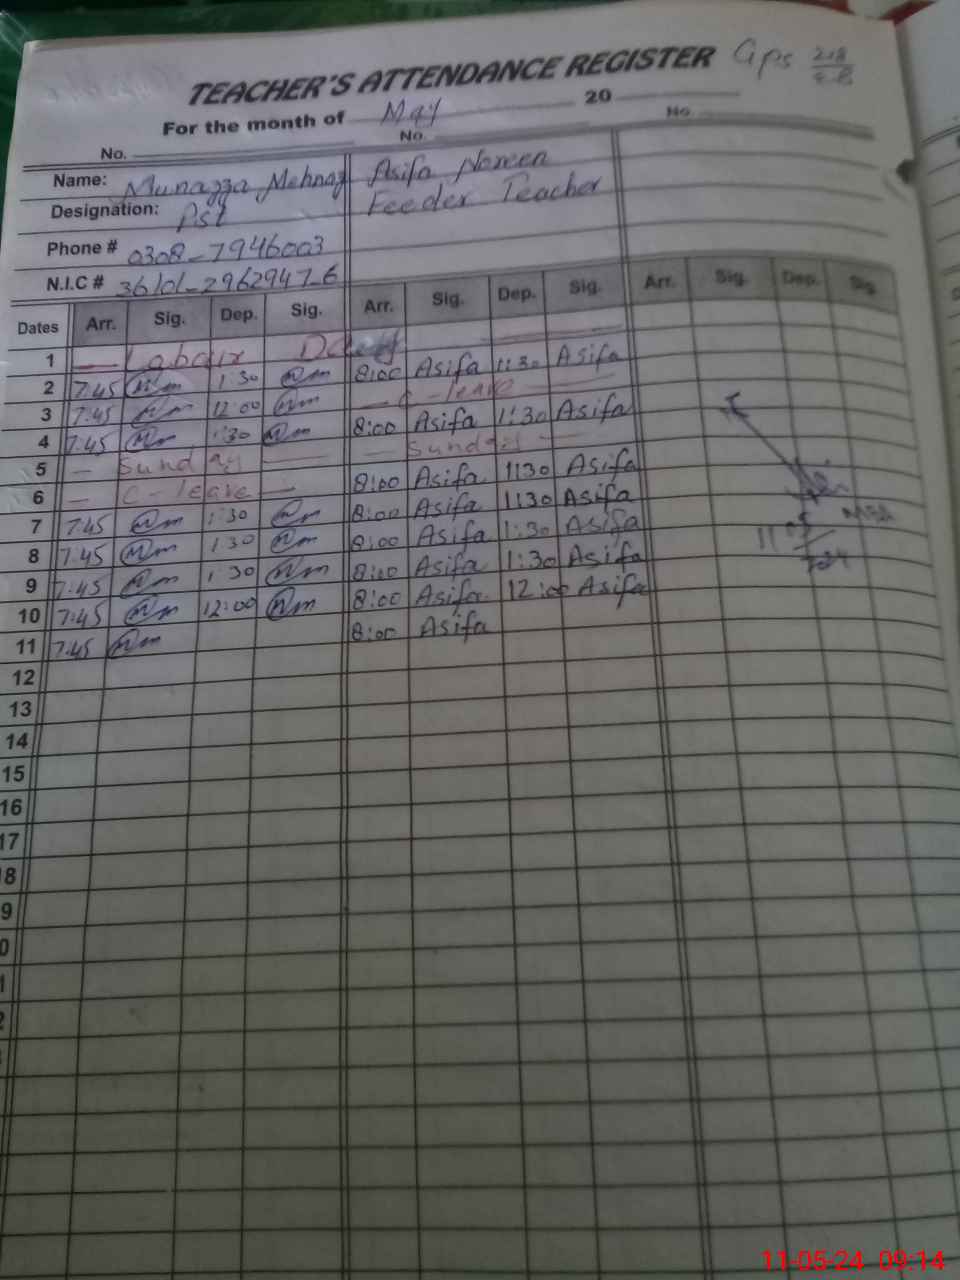 TEACHER'S ATTENDANCE REGISTER Gps 218/E.B
For the month of May 20
No. No. No.
Name: Munazza Mehnaz Asifa Noreen
Designation: Pst Feeder Teacher
Phone # 0308-7946003
N.I.C # 36101-2962947-6
Dates Arr. Sig. Dep. Sig. Arr. Sig. Dep. Sig. Arr. Sig. Dep. Sig.
1 — Labour Day
2 7:45 1:30 8:00 Asifa 1:30 Asifa
3 7:45 12:00 — C-leave —
4 7:45 1:30 8:00 Asifa 1:30 Asifa
5 — Sunday — — Sunday —
6 — C-leave — 8:00 Asifa 1130 Asifa
7 7:45 1:30 8:00 Asifa 1130 Asifa
8 7:45 130 8:00 Asifa 1:30 Asifa
9 7:45 1:30 8:00 Asifa 1:30 Asifa
10 7:45 12:00 8:00 Asifa 12:00 Asifa
11 7:45 8:00 Asifa
12
13
14
15
16
17
8
9
0
1
2
11-05-24 09:14